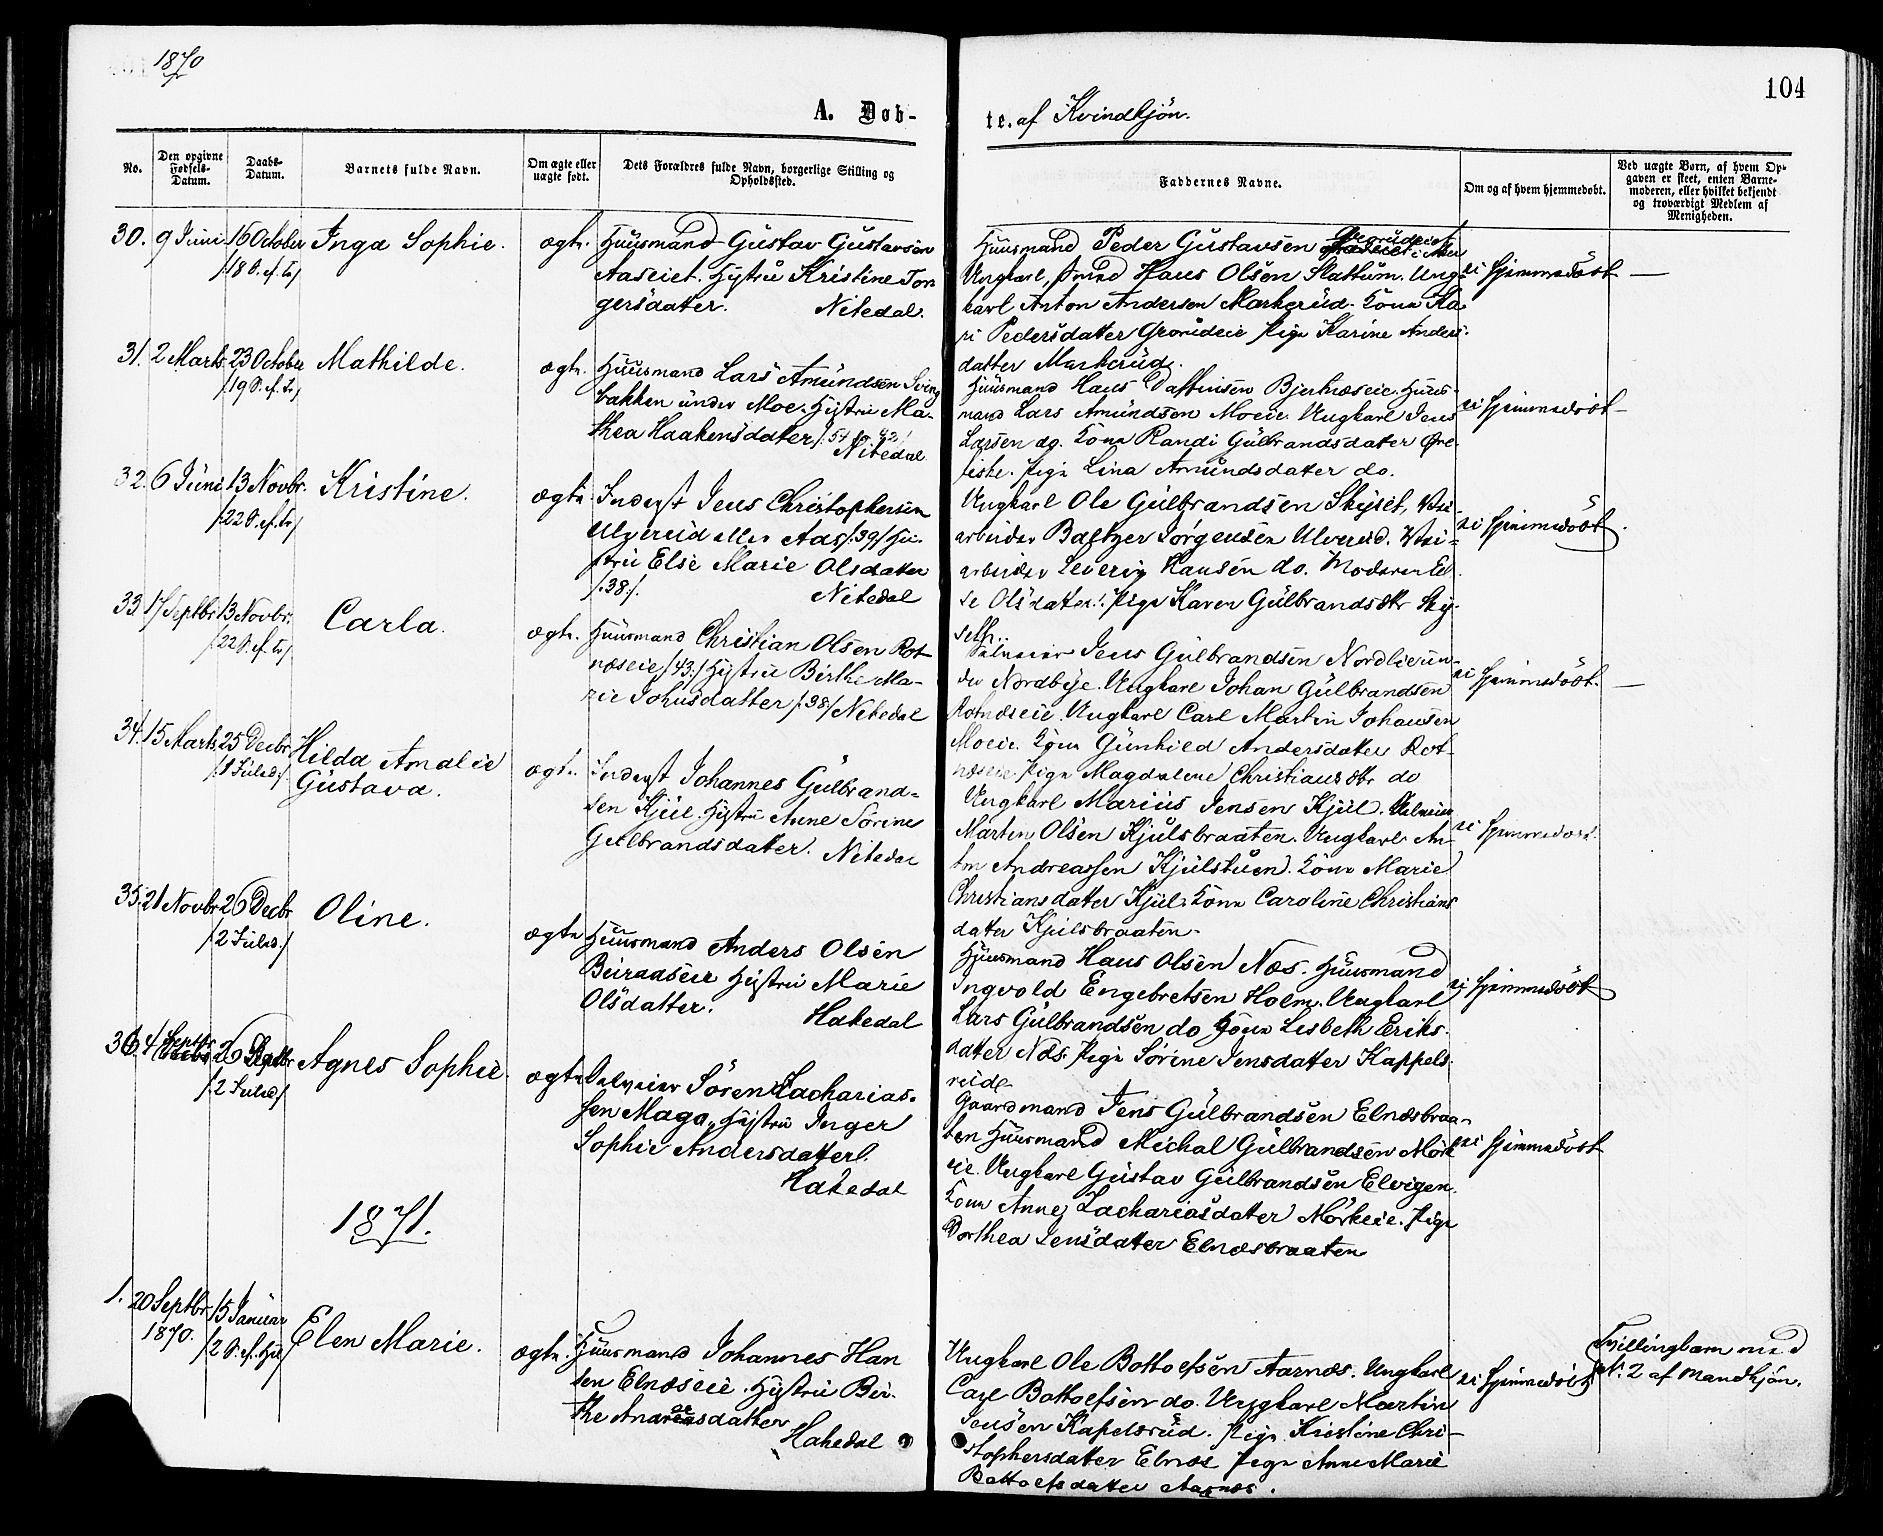 1870
104
A. Døb-
te. af Kvindkjön.
No.
Den opgivne Fødsels-Datum.
Daabs-Datum.
Barnets fulde Navn.
Om ægte eller uægte født.
Dets Forældres fulde Navn, borgerlige Stilling og Opholdssted.
Faddernes Navne.
Om og af hvem hjemmedøbt.
Ved uægte Børn, af hvem Op-
gaven er skeet, enten Barne-
moderen, eller hvilket bekjendt
og troværdigt Medlem af
Menigheden.
30. 9 Juni 16 October Inga Sophie. ægte.
/18 S. ef. Tr/
Huusmand Gustav Gustavsen
Aaseiet. Hustru Kristine Tor
gersdatter. Nitedal.
Huusmand Peder Gustavsen
Ungkarl, Smed Hans Olsen Slattum. Ung-
karl Anton Andersen Markerud. Kone Ka
ri Pedersdatter Pige Karine Anders-
datter Markerud.
ei hjemmedöbt —
31. 2 Marts 23 October Mathilde. ægte.
/19 S. ef. Tr/
Huusmand Lars Amundsen Sving
bakken under Moe. Hustru Ma-
thea Haakensdatter /: 51 og 42/
Nitedal
Huusmand Hans Bjerknæseie. Huus-
mand Lars Amundsen Moeie. Ungkarl Jens
Larsen do. Kone Randi Gulbrandsdater
Pige Lina Amundsdatter do.
ei hjemmedöbt —
32. 6 Juni 13 Novbr. Kristine. ægte
/22 S. ef. Tr/
Inderst Jens Christophersen
Ulverud eller Aas /:39/ Hu-
stru Else Marie Olsdatter
/:38:/. Nitedal
Ungkarl Ole Gulbrandsen Skyset, Vei-
arbeider Baltzer Jørgensen Ulverud. Vei-
arbeider Severin Hansen do. Moderen El
se Olsdatter. Pige Karen Gulbrandsdtr Sky-
seth.
ei hjemmedöbt.
33. 17 Septbr. 13 Novbr. Carla. ægte.
/22 S. ef. Tr/
Huusmand Christian Olsen Rot
næseie /43:/ Hustru Birthe Ma-
rie Johnsdatter /:38/ Nitedal
Selveier Jens Gulbrandsen Nordlie un-
der Nordbye. Ungkarl Johan Gulbrandsen
Rotnæseie. Ungkarl Carl Martin Johansen
Moeie. Kone Gunhild Andersdatter Rot-
næseie. Pige Magdalene Christiansdtr do
ei hjemmedöbt. —
34. 15 Marts 25 Decbr. Hilda Amalie
/1 Juled/ Gustava. ægte.
Inderst Johannes Gulbrand-
sen Kjul. Hustru Anne Sörine
Gulbrandsdatter. Nitedal
Ungkarl Marius Jensen Kjul. Selveier
Martin Olsen Kjulsbraaten. Ungkarl An-
ton Andreassen Kjulstuen. Kone Marie
Christiansdatter Kjul. Kone Caroline Christians
dater Kjulsbraaten.
ei hjemmedöbt.
35. 21 Novbr 26 Decbr Oline. ægte
/2 Juled./
Huusmand Anders Olsen
Hustru Marie
Olsdatter. Hakedal
Huusmand Hans Olsen Næs. Huusmand
Ingvold Engebretsen Holm. Ungkarl
Lars Gulbrandsen do Kone Lisbeth Eriks-
datter Næs. Pige Sörine Jensdatter Kappels-
rud
ei hjemmedöbt
36. 4 Septbr 26 Decbr Agnes Sophie. ægte
/2 Juled/
Selveier Sören Zacharias-
sen Maga. Hustru Inger
Sophie Andersdatter.
Hakedal
Gaardmand Jens Gulbrandsen Elnæsbraa-
ten Huusmand Michal Gulbrandsen Mörk
eie. Ungkarl Gustav Gulbrandsen Elvigen.
Kone Anne Zachariasdater Mörkeie. Pige
Dorthea Jensdatter Elnæsbraaten
ei hjemmedöbt
1871.
1. 20 Septbr 15 Januar Elen Marie. ægte.
1870. /2 S. ef. H3k/
Huusmand Johannes Han
sen Elnæseie. Hustru Bir-
the Andreasdatter
Hakedal
Ungkarl Ole Bottolfsen Aarnæs. Ungkarl
Carl Bottolfsen do. Ungkarl Martin
Jensen Kapelsrud. Pige Kristine Chri-
stophersdatter Elnæs Pige Anne Marie
Bottolfsdatter Aarnæs.
ei hjemmedöbt
Tvillingbarn med
N: 2 af Mandkjön.